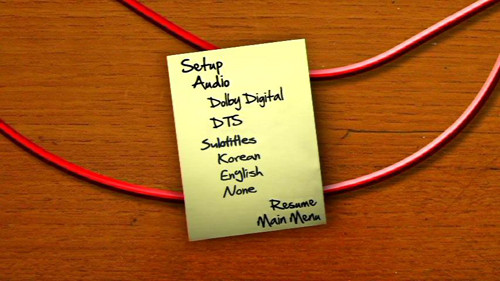 Setup
Audio
Dolby Digital
DTS
Subtitles
Korean
English
None
Resume
Main Menu